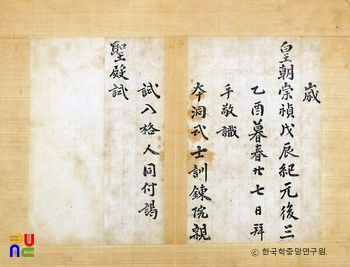 歲
皇朝崇禎戊辰紀元後三
乙酉暮春卄七日拜
手敬識
本洞武士訓鍊院親
試入格人同付謁
聖殿試
ⓒ 한국학중앙연구원